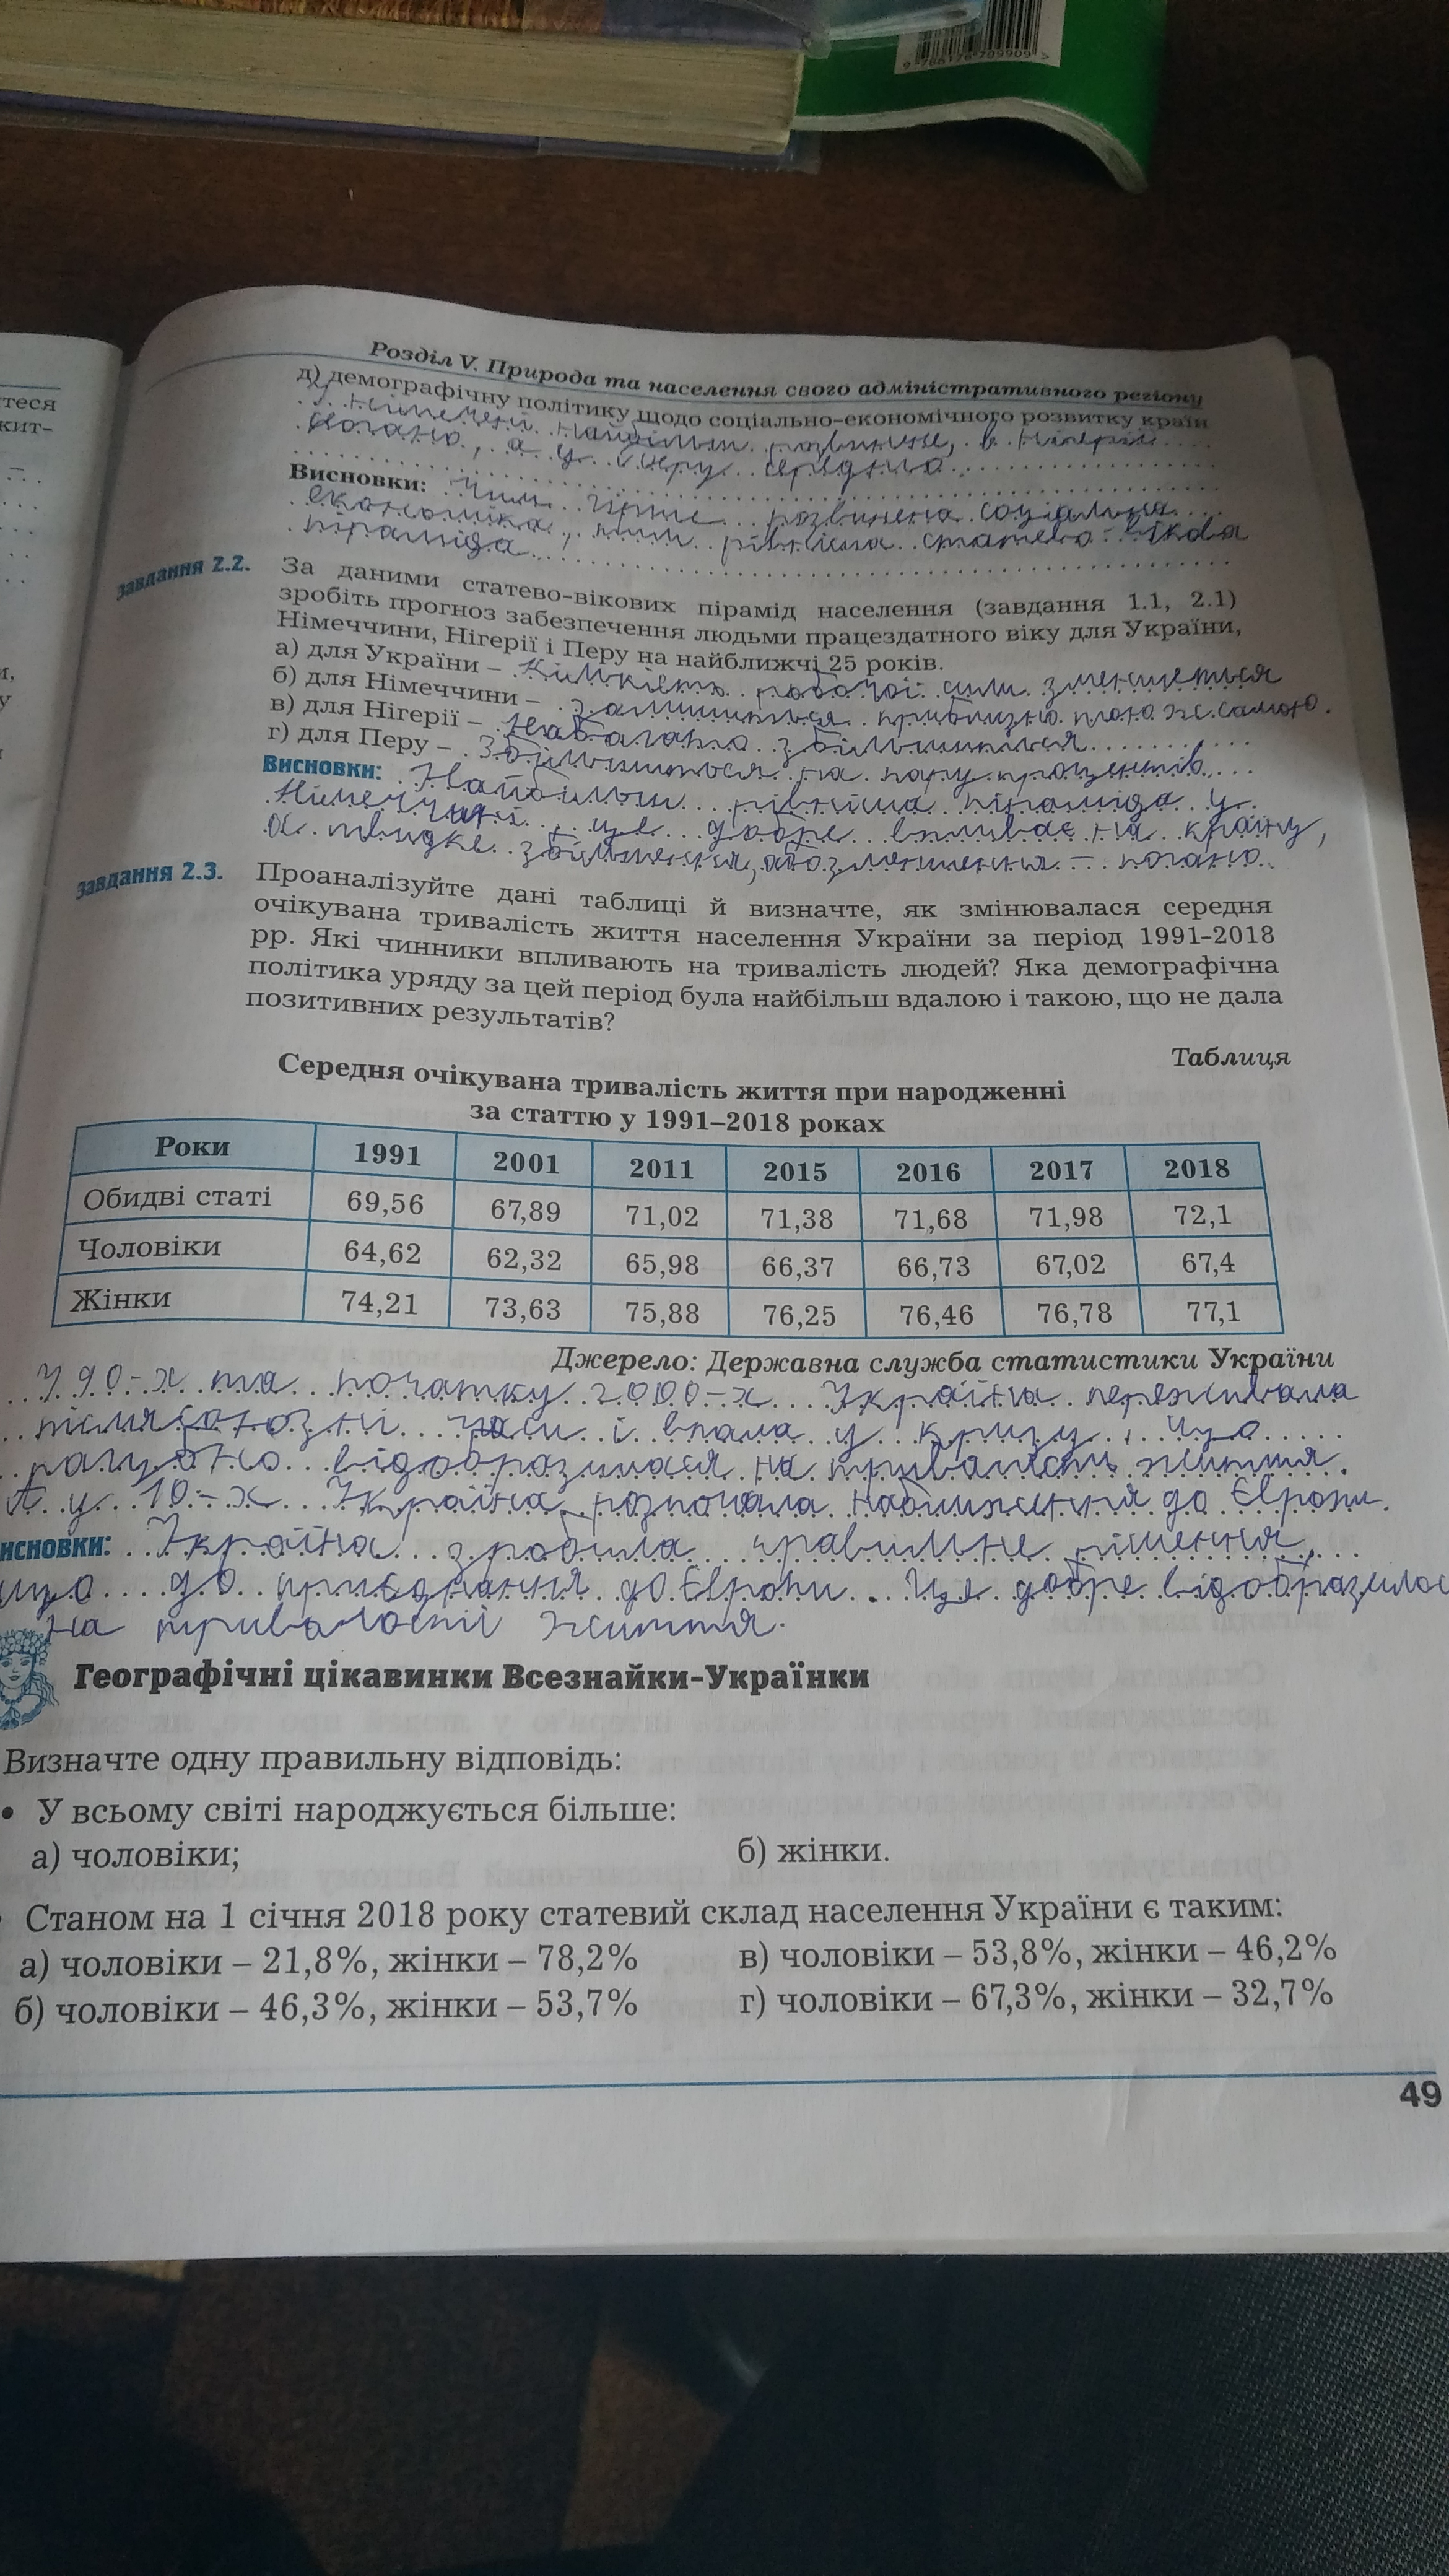 9 786178 799909 >
Розділ V. Природа та населення свого адміністративного регіону
теся
кит-
и,
у
д) демографічну політику щодо соціально-економічного розвитку країн
У найбільш розвинене, в Нігерії
погано, а у Перу середньо.
Висновки: Чим гірше розвинена соціальна
економіка, тим рівніша статево-вікова
піраміда
Завдання 2.2. За даними статево-вікових пірамід населення (завдання 1.1, 2.1)
зробіть прогноз забезпечення людьми працездатного віку для України,
Німеччини, Нігерії і Перу на найближчі 25 років.
а) для України – Кількість робочої сили зменшеться
б) для Німеччини – залишиться приблизно такою ж самою.
в) для Нігерії – Набагато збільшиться
г) для Перу – Збільшиться на пару процентів
Висновки: Найбільш рівніша піраміда у
Німеччині, це добре впливає на країну,
а швидке збільшення, або зменшення – погано.
Завдання 2.3. Проаналізуйте дані таблиці й визначте, як змінювалася середня
очікувана тривалість життя населення України за період 1991–2018
рр. Які чинники впливають на тривалість людей? Яка демографічна
політика уряду за цей період була найбільш вдалою і такою, що не дала
позитивних результатів?
Таблиця
Середня очікувана тривалість життя при народженні
за статтю у 1991–2018 роках
Роки 1991 2001 2011 2015 2016 2017 2018
Обидві статі 69,56 67,89 71,02 71,38 71,68 71,98 72,1
Чоловіки 64,62 62,32 65,98 66,37 66,73 67,02 67,4
Жінки 74,21 73,63 75,88 76,25 76,46 76,78 77,1
Джерело: Державна служба статистики України
У 90-х та початку 2000-х Україна переживала
часи і впала у кризу, що
відобразилася на тривалість життя.
А у 10-х Україна розпочала наближення до Європи.
исновки: Україна зробила правильне рішення,
що до приєднання до Європи. Це добре відобразилос
на тривалості життя.
Географічні цікавинки Всезнайки-Українки
Визначте одну правильну відповідь:
• У всьому світі народжується більше:
а) чоловіки; б) жінки.
Станом на 1 січня 2018 року статевий склад населення України є таким:
а) чоловіки – 21,8%, жінки – 78,2% в) чоловіки – 53,8%, жінки – 46,2%
б) чоловіки – 46,3%, жінки – 53,7% г) чоловіки – 67,3%, жінки – 32,7%
49